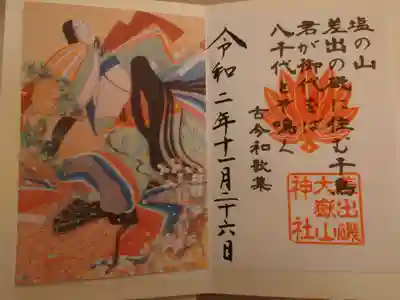 塩の山
差出の磯に住む千鳥
君が御代をば
八千代とぞ鳴く
古今和歌集
差出磯
大嶽山
神社
令和二年十一月二十六日